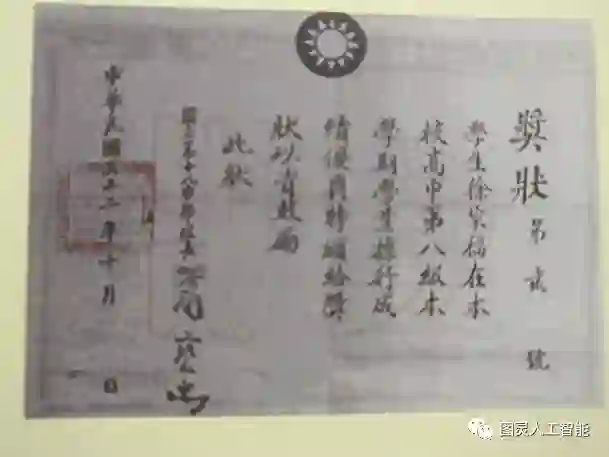 獎狀 第 號
學生徐 在本
校高中第八級本
學期學業操行成
績優良特頒給獎
狀以資鼓勵
此狀
國立第十八中學校長
中華民國三十二年十月 日
图灵人工智能